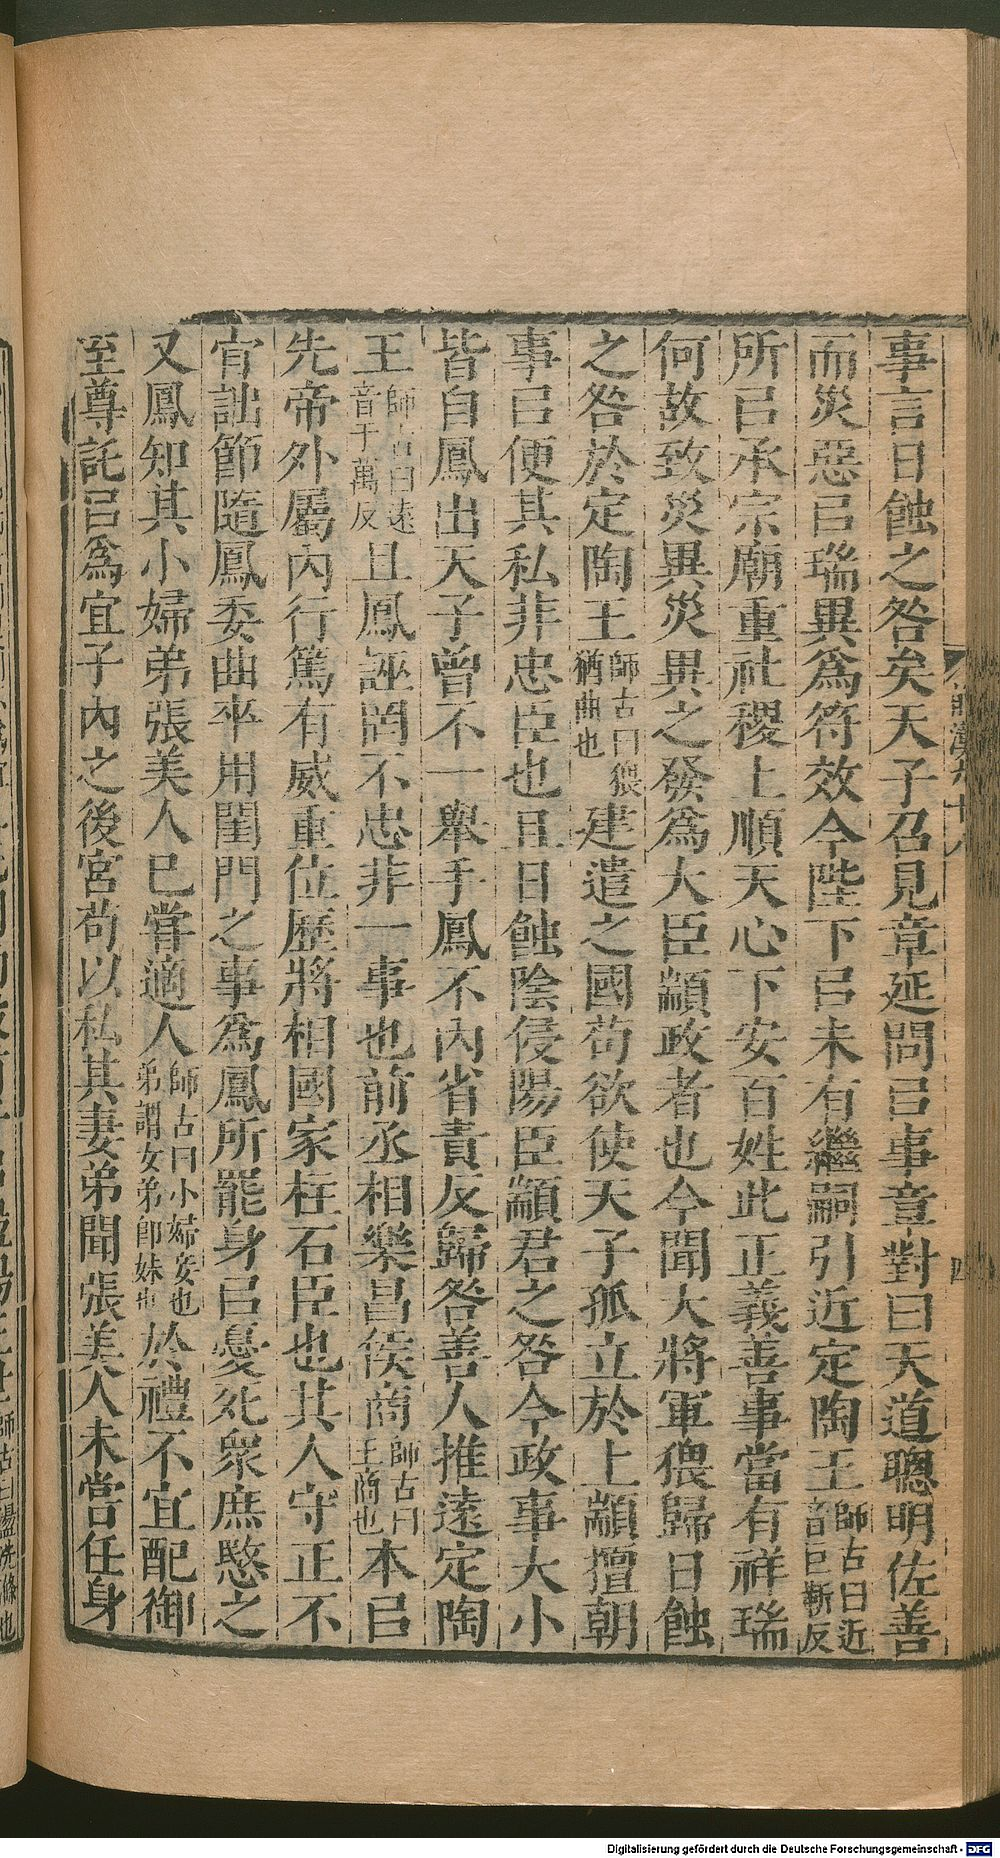 事言日蝕之咎矣天子召見章延問㠯事章對曰天道聰明佐善
而災惡㠯瑞異爲符效今陛下㠯未有繼嗣引近定陶王師古曰近音巨靳反
所㠯承宗廟重社稷上順天心下安百姓此正義善事當有祥瑞
何故致災異災異之發爲大臣顓政者也今聞大將軍猥歸日蝕
之咎於定陶王師古曰猥猶曲也建遣之國苟欲使天子孤立於上顓擅朝
事㠯便其私非忠臣也且日蝕陰侵陽臣顓君之咎今政事大小
皆自鳳出天子曾不一舉手鳳不內省責反歸咎善人推遠定陶
王師古曰遠音于萬反且鳳誣罔不忠非一事也前丞相樂昌侯商師古曰王商也本㠯
先帝外屬內行篤有威重位歷將相國家柱石臣也其人守正不
肯詘節隨鳳委曲卒用閨門之事爲鳳所罷身㠯憂死衆庶愍之
又鳳知其小婦弟張美人已嘗適人師古曰小婦妾也弟謂女弟卽妹也於禮不宜配御
至尊託㠯爲宜子內之後宮苟以私其妻弟聞張美人未嘗任身
Digitalisierung gefördert durch die Deutsche Forschungsgemeinschaft - DFG